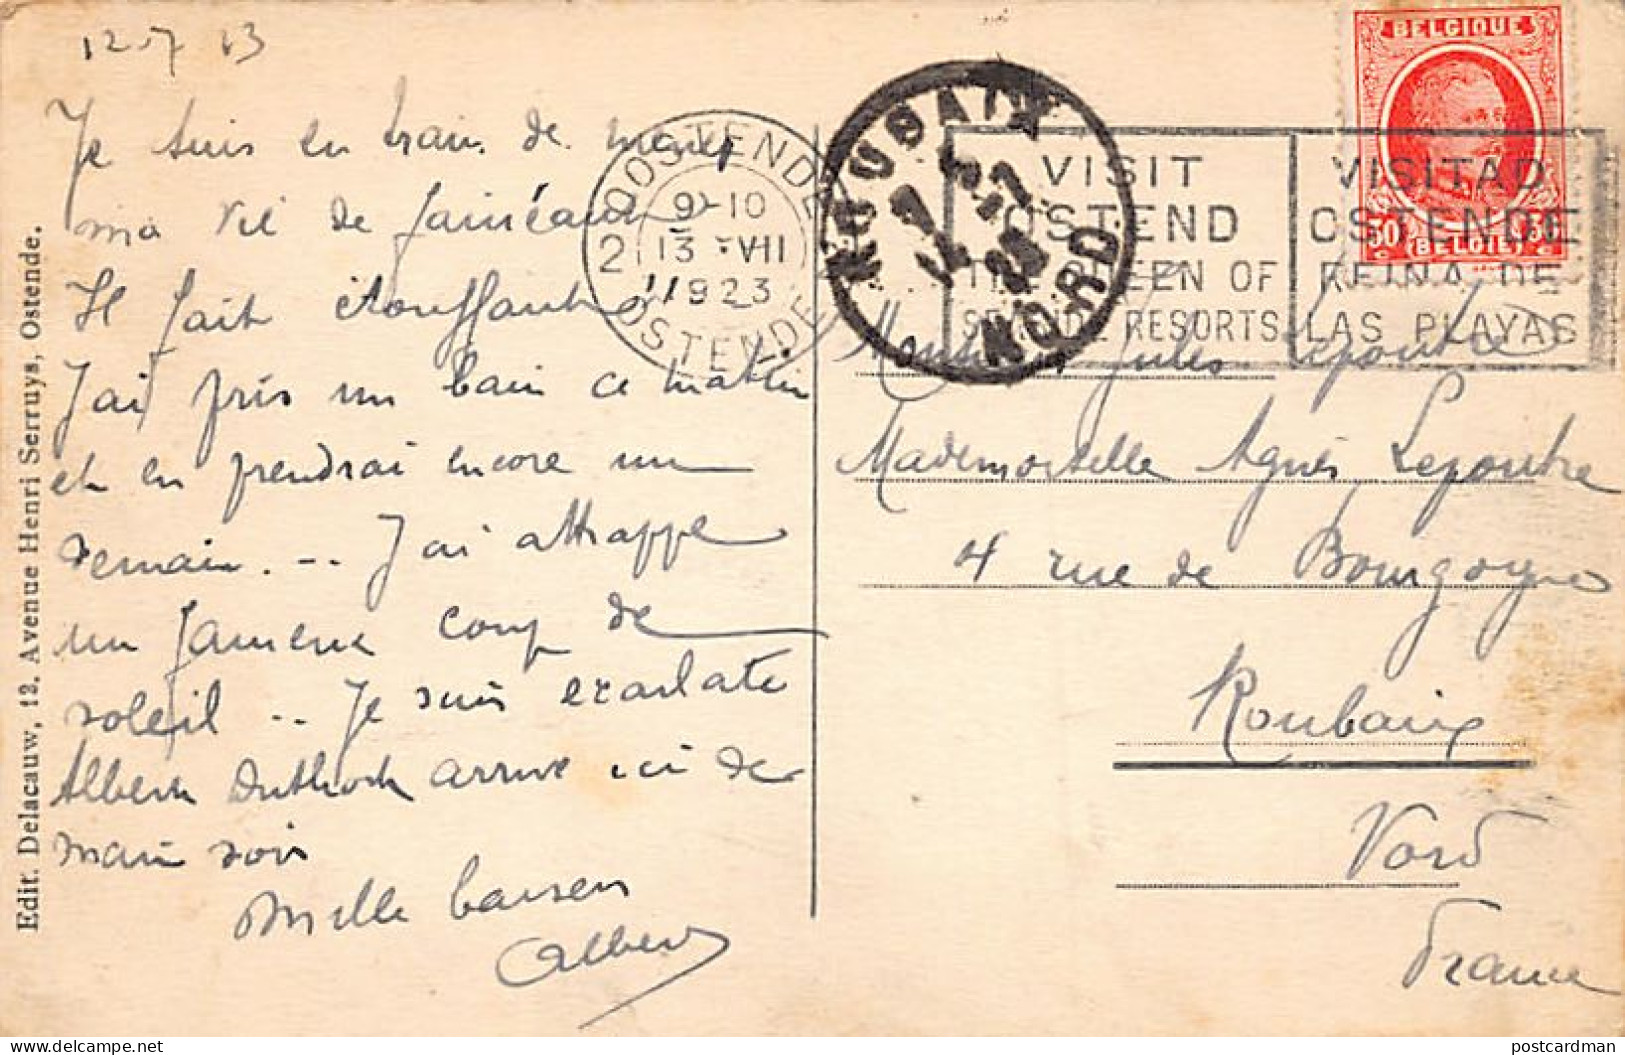 12.7 23
Je suis en train de mener
ma vie de fainéant
Il fait étouffant
J'ai pris un bain ce matin
et en prendrai encore un
demain. -- J'ai attrappé
un fameux coup de
soleil .. Je suis ecarlate
Albert arrive ici de
main soir
Mille baisers
Albert
Edit. Delacauw, 12. Avenue Henri Serruys, Ostende.
OOSTENDE
2
9-10
13 VII
1923
OSTENDE
ROUBAIX
NORD
VISIT
OSTEND
THE QUEEN OF
SEASIDE RESORTS
VISITAD
OSTENDE
REINA DE
LAS PLAYAS
BELGIQUE
30
BELGIE
30
Monsieur Jules Lepoutre
Mademoiselle Agnès Lepoutre
4 rue de Bourgogne
Roubaix
Nord
France
postcardman